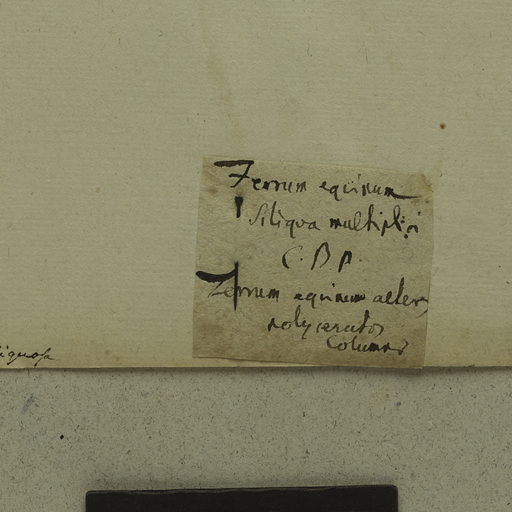 Ferrum equinum
Siliqua multiplici
C. B P.
Ferrum equinum alterum
polyceratos
Columnæ